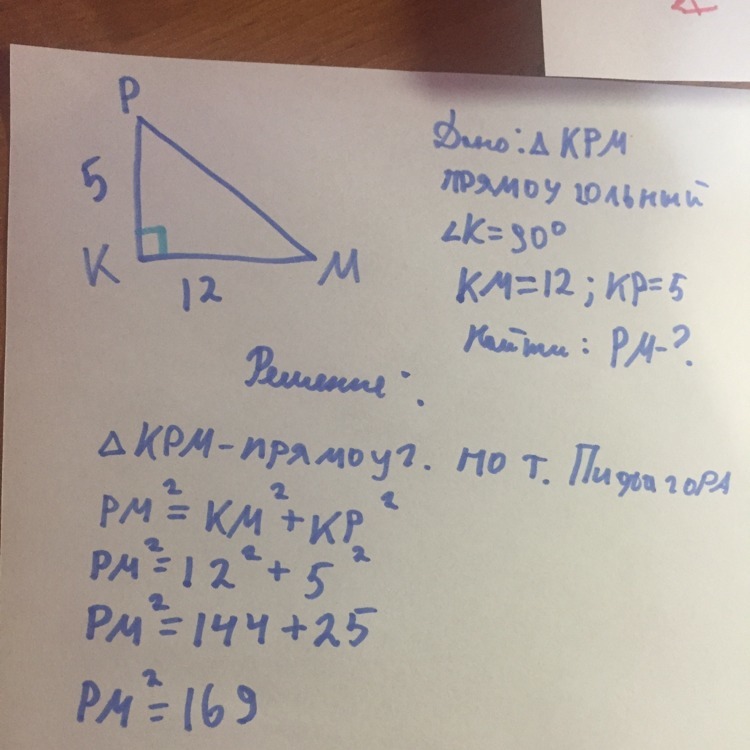 P
5
K
12
M
Дано: Δ KPM
прямоугольный
∠K=90°
KM=12; KP=5
Найти: PM-?
Решение:
Δ KPM-прямоуг. по т. Пифагора
PM²=KM²+KP²
PM²=12²+5²
PM²=144+25
PM²=169